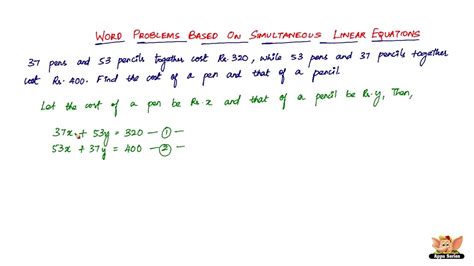 WORD PROBLEMS BASED ON SIMULTANEOUS LINEAR EQUATIONS
37 pens and 53 pencils together cost Rs. 320, while 53 pens and 37 pencils together
cost Rs. 400. Find the cost of a pen and that of a pencil.
Let the cost of a pen be Rs. x and that of a pencil be Rs. y, Then,
37x + 53y = 320 — ① —
53x + 37y = 400 — ② —
Appu Series